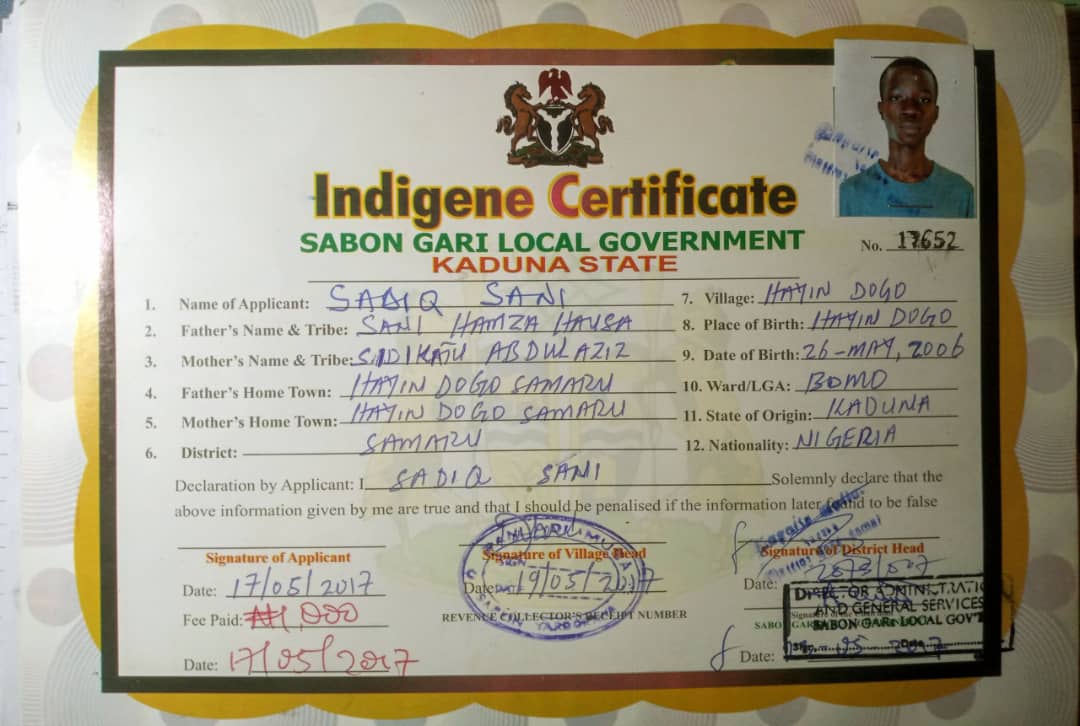 Indigene Certificate
SABON GARI LOCAL GOVERNMENT
KADUNA STATE
No. 17652
1. Name of Applicant: SADIQ SANI
2. Father's Name & Tribe: SANI HAMZA HAUSA
3. Mother's Name & Tribe: SIDIKATU ABDULAZIZ
4. Father's Home Town: HAYIN DOGO SAMARU
5. Mother's Home Town: HAYIN DOGO SAMARU
6. District: SAMARU
7. Village: HAYIN DOGO
8. Place of Birth: HAYIN DOGO
9. Date of Birth: 26-MAY, 2006
10. Ward/LGA: BOMO
11. State of Origin: KADUNA
12. Nationality: NIGERIA
Declaration by Applicant: I SADIQ SANI Solemnly declare that the
above information given by me are true and that I should be penalised if the information later found to be false
Signature of Applicant
Date: 17/05/2017
Fee Paid: ₦1,000
Date: 17/05/2017
Signature of Village Head
Date: 19/05/2017
REVENUE COLLECTOR'S RECEIPT NUMBER
Signature of District Head
Date:
DIRECTOR ADMINISTRATIO
AND GENERAL SERVICES
SABON GARI LOCAL GOV'T
Date: 05 2017